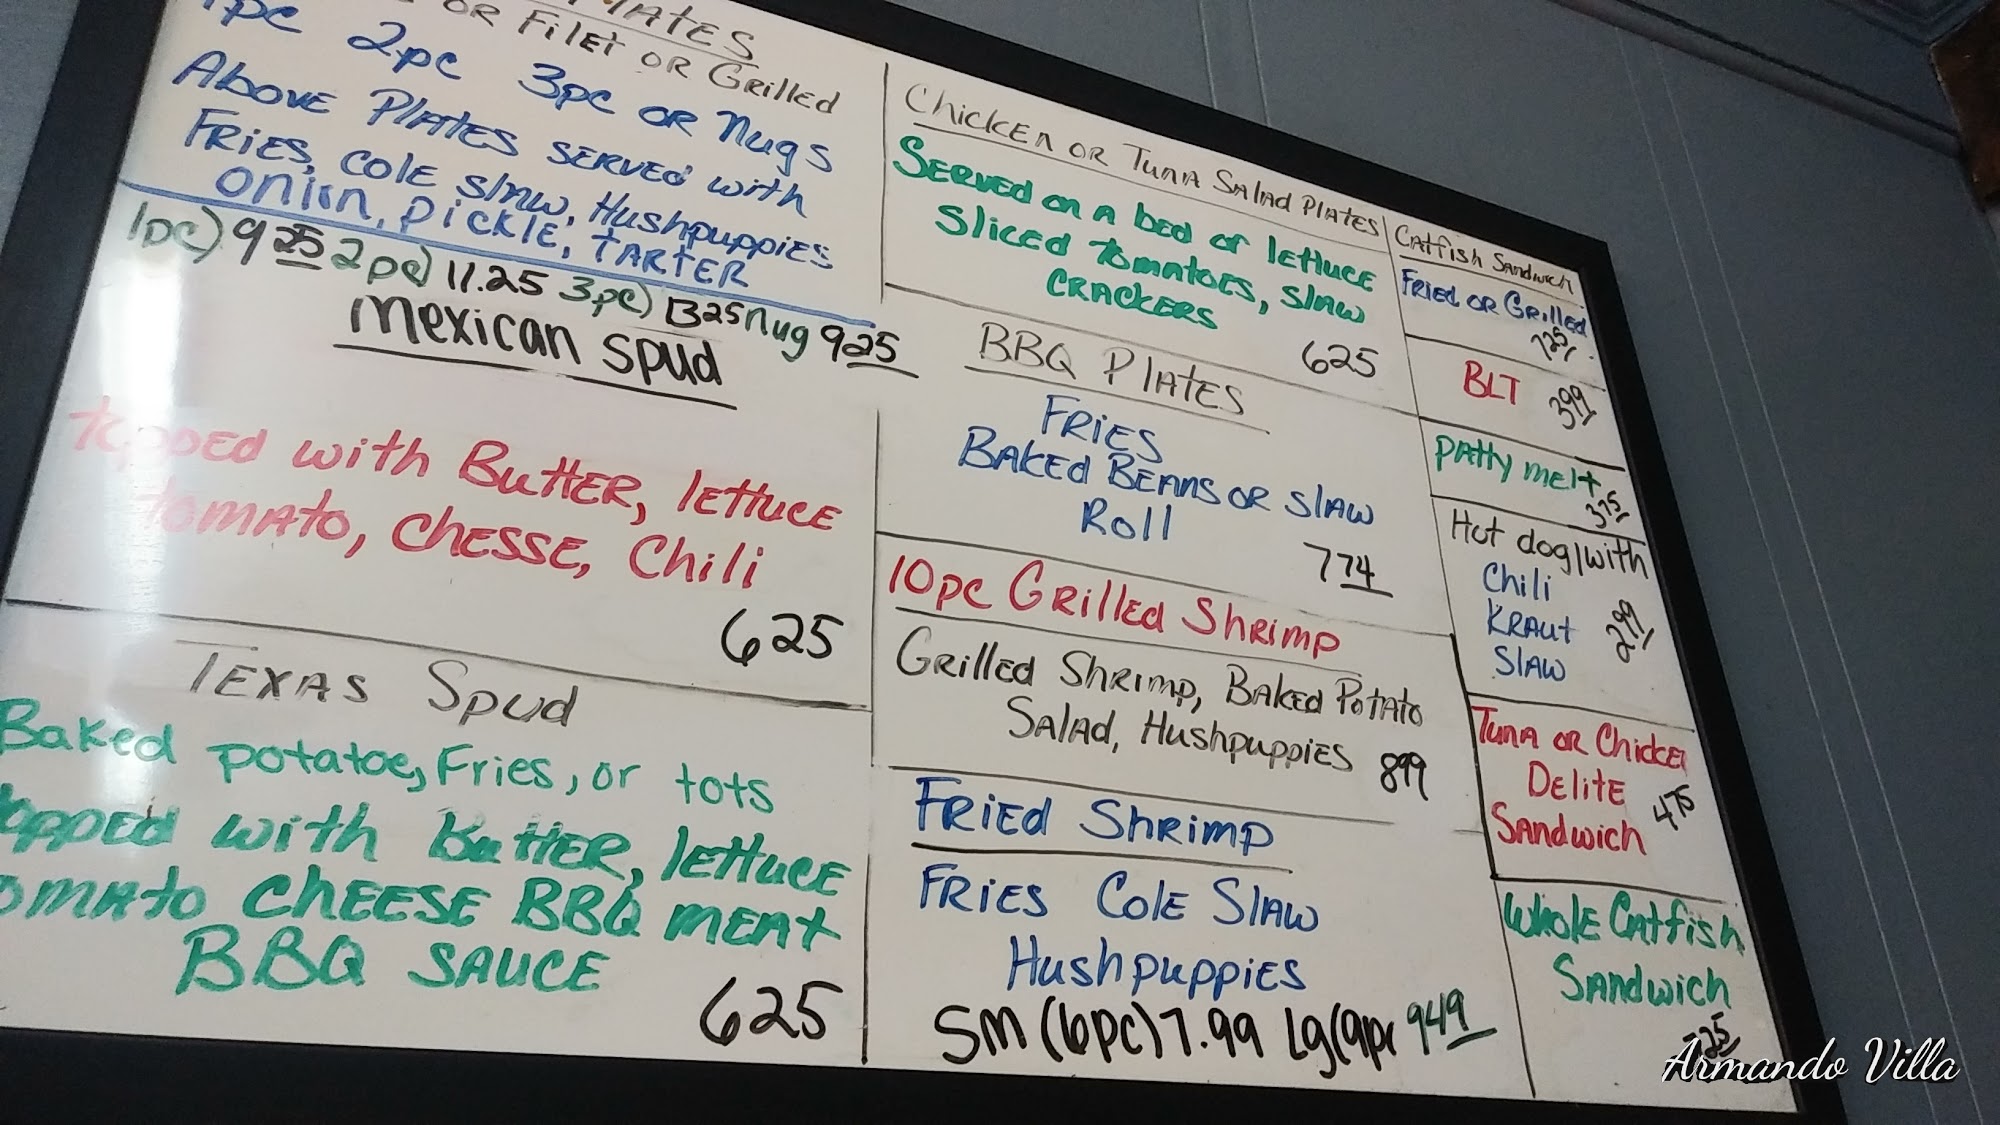 OR Filet OR Grilled
1pc 2pc 3pc OR Nugs
Above Plates served with
Fries, Cole slaw, Hushpuppies
Onion, Pickle, Tarter
1pc) 925 2pc) 11.25 3pc) 1325 Nug 925
Mexican Spud
topped with Butter, lettuce
tomato, Chesse, Chili
625
Texas Spud
Baked potatoe, Fries, or tots
topped with Butter, lettuce
tomato Cheese BBQ meat
BBQ Sauce
625
Chicken or Tuna Salad Plates
Served on a bed of lettuce
Sliced tomatoes, slaw
Crackers
625
BBQ Plates
Fries
Baked Beans or slaw
Roll
774
10pc Grilled Shrimp
Grilled Shrimp, Baked Potato
Salad, Hushpuppies 899
Fried Shrimp
Fries Cole Slaw
Hushpuppies
Sm (6pc) 7.99 Lg (9pc 949
Catfish Sandwich
Fried or Grilled
725
BLT 399
Patty melt
375
Hot dog/with
Chili
Kraut 299
Slaw
Tuna or Chicken
Delite 475
Sandwich
Whole Catfish
Sandwich
Armando Villa